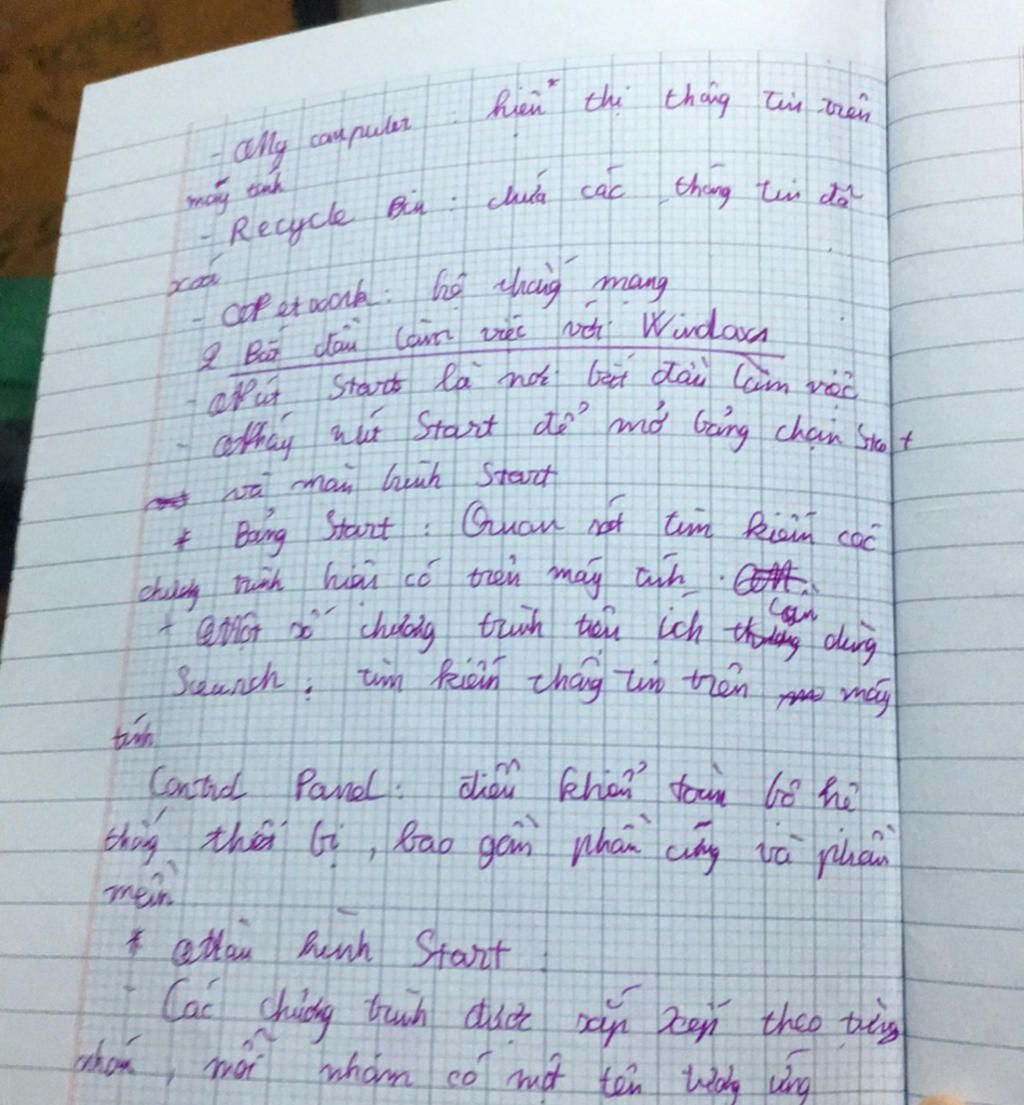 - My computer : hiển thị thông tin trên
máy tính
- Recycle Bin : chứa các thông tin đã
xoá
- Network : hệ thống mạng
2 Bắt đầu làm việc với Windows
- Nút Start là nơi bắt đầu làm việc
- Nháy nút Start để mở bảng chọn Start
và màn hình Start
* Bảng Start : Quan sát tìm kiếm các
chương trình hiện có trên máy tính.
+ Một số chương trình tiện ích cần dùng
Search : tìm kiếm thông tin trên máy
tính
Control Panel : điều khiển toàn bộ hệ
thống thiết bị, bao gồm phần cứng và phần
mềm
* Màn hình Start :
- Các chương trình được sắp xếp theo từng
nhóm, mỗi nhóm có một tên tương ứng